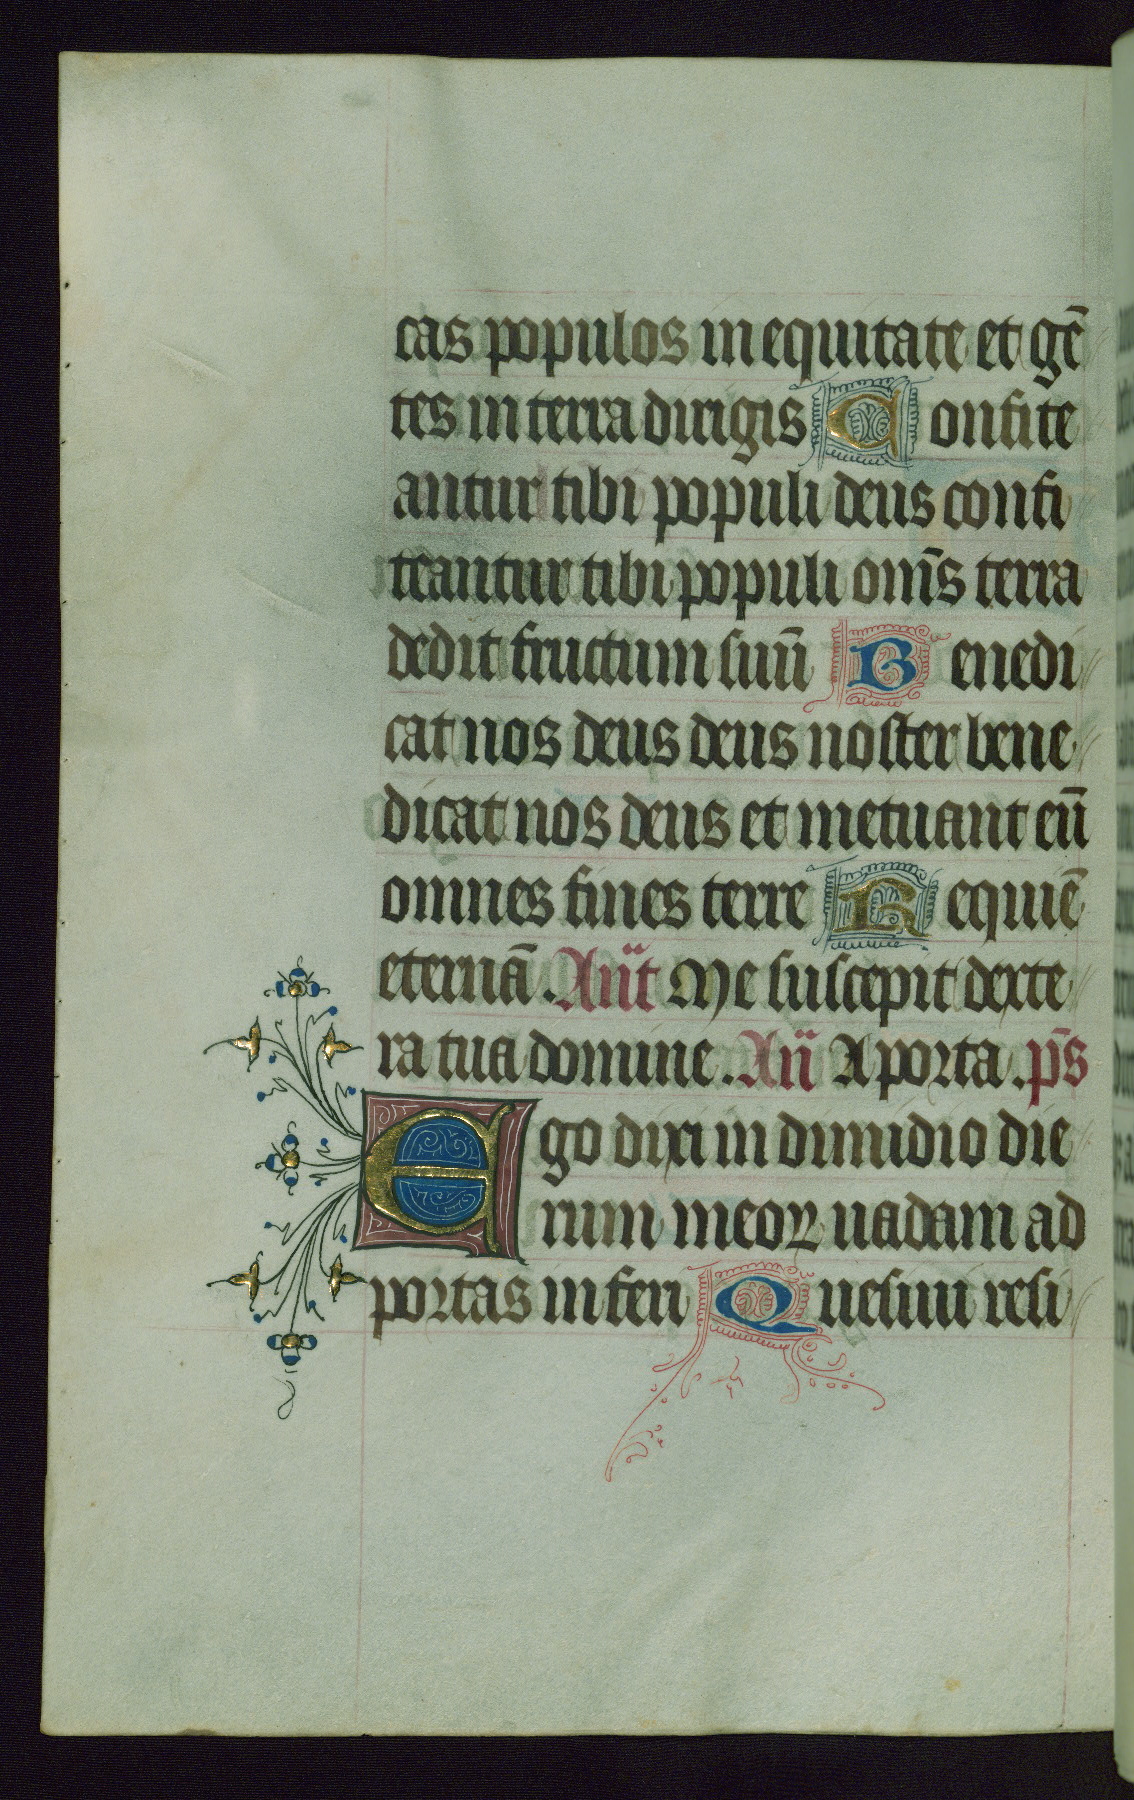 cas populos in equitate et gē
tes in terra dirigis Confite
antur tibi populi deus confi
teantur tibi populi oms̄ terra
dedit fructum suū Benedi
cat nos deus deus noster bene
dicat nos deus et metuant eū
omnes fines terre Requiē
eternā. Añt Me suscepit dexte
ra tua domine. Añ A porta. ps̄
Ego dixi in dimidio die
rum meoꝝ uadam ad
portas inferi Quesiui resi